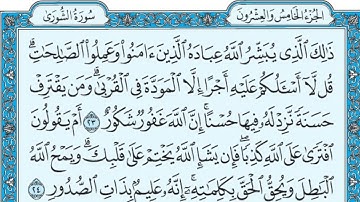 الجزء الخامس والعشرون سورة الشورى
ذَٰلِكَ ٱلَّذِي يُبَشِّرُ ٱللَّهُ عِبَادَهُ ٱلَّذِينَ ءَامَنُوا۟ وَعَمِلُوا۟ ٱلصَّٰلِحَٰتِ ۗ
قُل لَّآ أَسْـَٔلُكُمْ عَلَيْهِ أَجْرًا إِلَّا ٱلْمَوَدَّةَ فِي ٱلْقُرْبَىٰ ۗ وَمَن يَقْتَرِفْ
حَسَنَةً نَّزِدْ لَهُۥ فِيهَا حُسْنًا ۚ إِنَّ ٱللَّهَ غَفُورٌ شَكُورٌ ٢٣ أَمْ يَقُولُونَ
ٱفْتَرَىٰ عَلَى ٱللَّهِ كَذِبًا ۖ فَإِن يَشَإِ ٱللَّهُ يَخْتِمْ عَلَىٰ قَلْبِكَ ۗ وَيَمْحُ ٱللَّهُ
ٱلْبَٰطِلَ وَيُحِقُّ ٱلْحَقَّ بِكَلِمَٰتِهِۦٓ ۚ إِنَّهُۥ عَلِيمٌۢ بِذَاتِ ٱلصُّدُورِ ٢٤